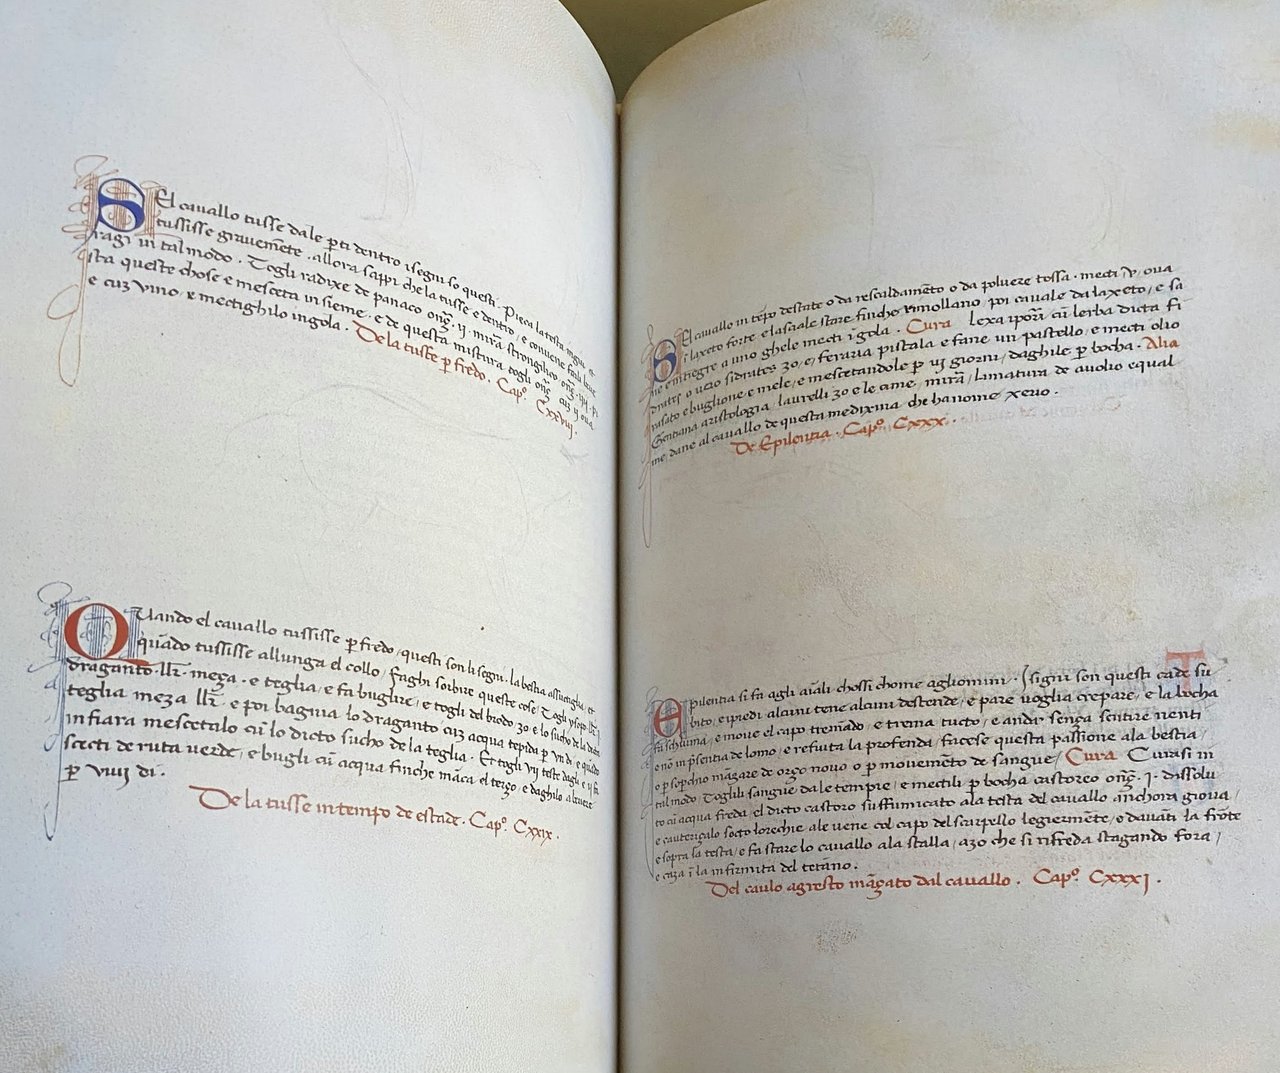 SEl cauallo tusse dale ꝑti dentro i segni so questi. Pieca la testa
tussisse grauemēte. allora sappi che la tusse e dentro, e conuiene farli
ragi in tal modo. Togli radixe de panaco onȝ. ij. mirra strongilico onȝ.
ista queste chose e mesceta insieme. e de questa mistura togli onȝ.
e cuȝ vino, e mectighilo in gola.
De la tusse ꝑ fredo. Capº. Cxxviij.
QUando el cauallo tussisse ꝑ fredo, questi son li segni. la bestia
quādo tussisse allunga el collo, faghi soibire queste cose, Togli ysopo
draganto. llr̄. meça. e teglia, e fa buglire, e togli del brodo 30. e lo sucho de la
teglia meza llr̄. e poi bagnia lo draganto cuȝ acqua tepida ꝑ vn di, e quādo
infiara mescetalo cū lo dicto sucho de la teglia. Et togli vij teste dagli e ij
scecti de ruta verde, e bugli cū acqua finche māca el terço, e daghilo
ꝑ viiij di.
De la tusse in tempo de estade. Capº. Cxxix.
SEl cauallo in tēpo destate o da rescaldamēto o da poluere tossa. mecti v. oua
i laxeto forte, e lasciale stare finche rimollano, poi cauale da laxeto, e sa
no e intiegre a vno ghele mecti ī gola. Cura lexa ipori cū lerba dicta fi
drates o ucio sidrates 30, e, feraria pistala e fane un pastello, e mecti olio
rasato e buglione e mele, e mescetandole ꝑ vij giorni, daghile ꝑ bocha. Alia
Gentiana aristologia, laurelli 30 e le came, mirā, limatura de auolio equal
me, dane al cauallo de questa medixina che ha nome xeruo.
De Epilentia. Capº. Cxxx.
T
EPilentia si fa agli aīali chossi chome agliomini. I signi son questi cade su
bito, e i piedi alcuni tene alcuni destende, e pare voglia crepare, e la bocha
fa schiuma, e moue el capo tremādo, e trema tucto, e andar sença sentire nenti
e nō in ꝑsentia de lomo, e refiuta la profenda, facese questa passione ala bestia,
o ꝑ sopchio māgare de orço nouo o ꝑ mouemēto de sangue, Cura Curasi in
tal modo. Toglili sangue da le tempie, e mectili ꝑ bocha castoreo onȝ. j. dissolu
to cū acqua freda, el dicto castoro suffumicato ala testa del cauallo anchora gioua,
e cauteriçalo socto lorechie ale uene col capo del scarpello legiermēte, e dauāti la frōte
e sopra la testa, e fa stare lo cauallo ala stalla, aȝo che si rifreda stagando fora,
e caȝa ī la infirmita del tetāno.
Del caulo agresto māgato dal cauallo. Capº. Cxxxj.